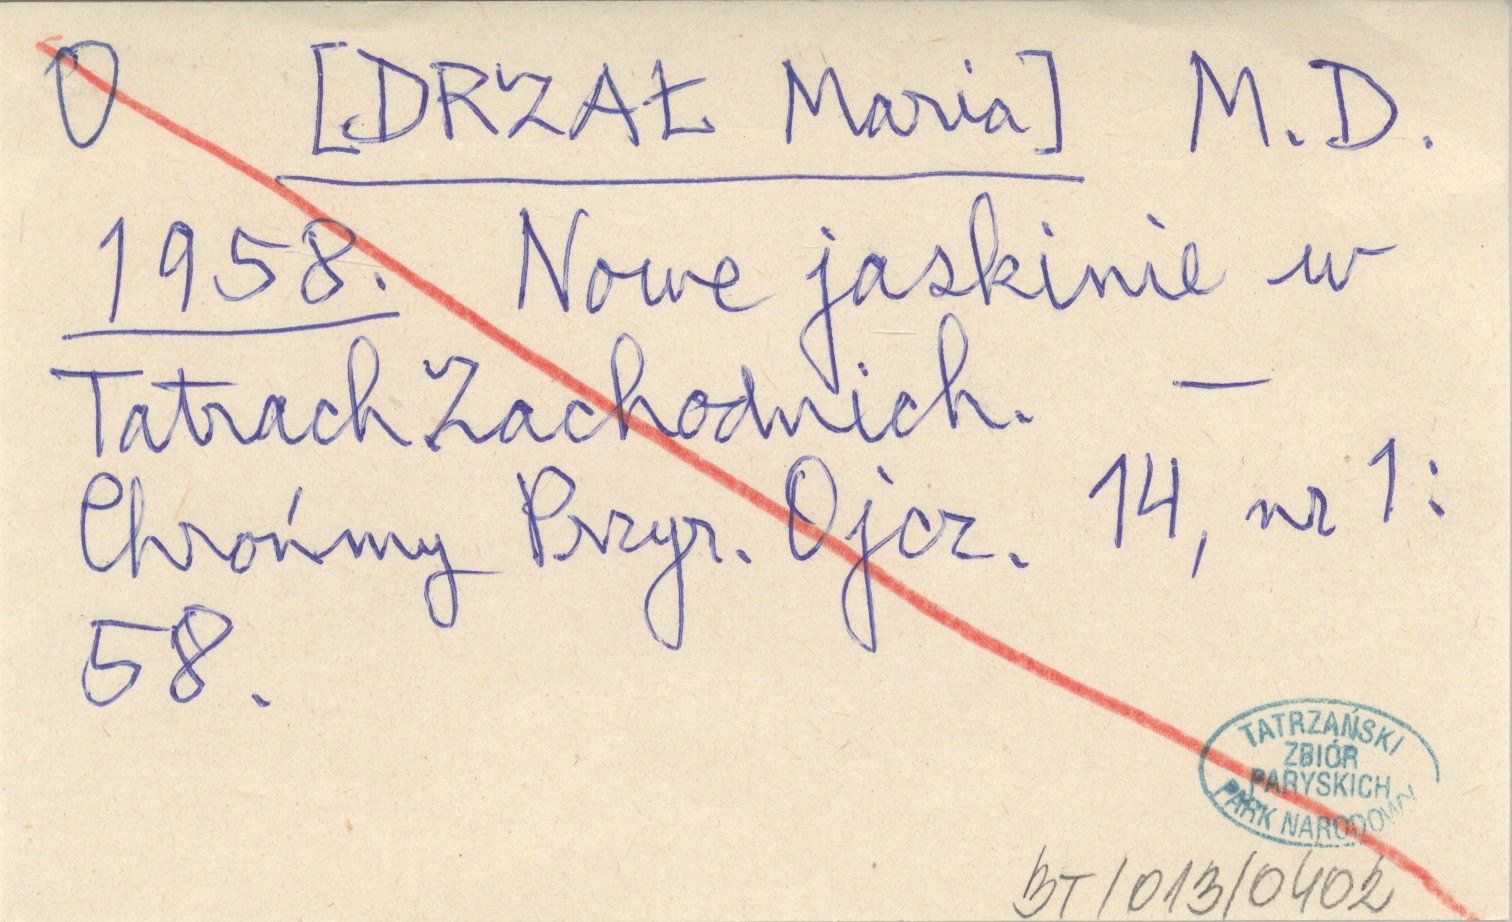 O [DRZAŁ Maria] M. D.
1958. Nowe jaskinie w
Tatrach Zachodnich. —
Chrońmy Przyr. Ojcz. 14, nr 1:
58.
TATRZAŃSKI
ZBIÓR
PARYSKICH
PARK NARODOWY
BT/013/0402